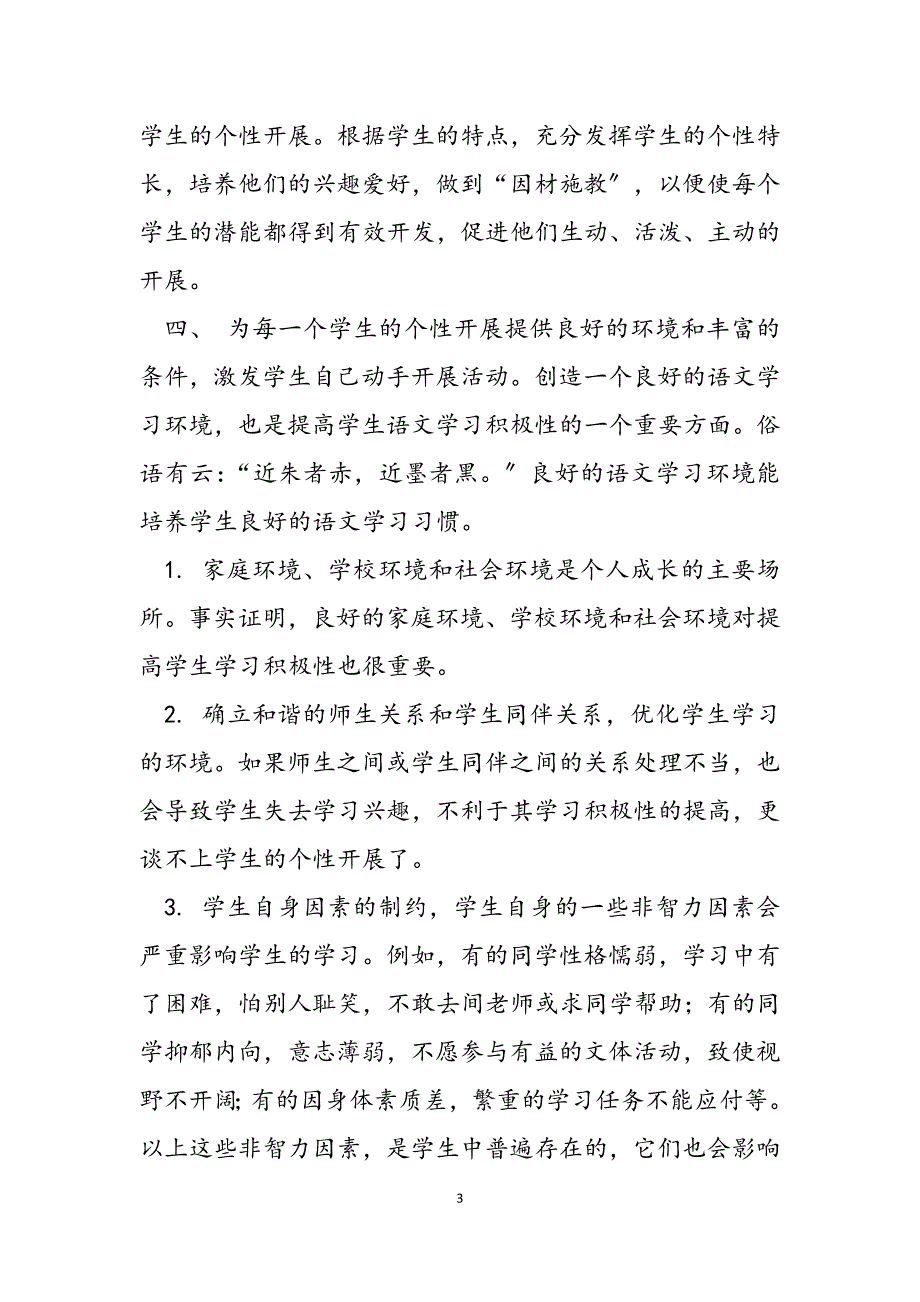 学生的个性开展。根据学生的特点，充分发挥学生的个性特
长，培养他们的兴趣爱好，做到“因材施教〞，以便使每个
学生的潜能都得到有效开发，促进他们生动、活泼、主动的
开展。
四、 为每一个学生的个性开展提供良好的环境和丰富的
条件，激发学生自己动手开展活动。创造一个良好的语文学
习环境，也是提高学生语文学习积极性的一个重要方面。俗
语有云：“近朱者赤，近墨者黑。〞良好的语文学习环境能
培养学生良好的语文学习习惯。
1. 家庭环境、学校环境和社会环境是个人成长的主要场
所。事实证明，良好的家庭环境、学校环境和社会环境对提
高学生学习积极性也很重要。
2. 确立和谐的师生关系和学生同伴关系，优化学生学习
的环境。如果师生之间或学生同伴之间的关系处理不当，也
会导致学生失去学习兴趣，不利于其学习积极性的提高，更
谈不上学生的个性开展了。
3. 学生自身因素的制约，学生自身的一些非智力因素会
严重影响学生的学习。例如，有的同学性格懦弱，学习中有
了困难，怕别人耻笑，不敢去间老师或求同学帮助；有的同
学抑郁内向，意志薄弱，不愿参与有益的文体活动，致使视
野不开阔；有的因身体素质差，繁重的学习任务不能应付等。
以上这些非智力因素，是学生中普遍存在的，它们也会影响
3